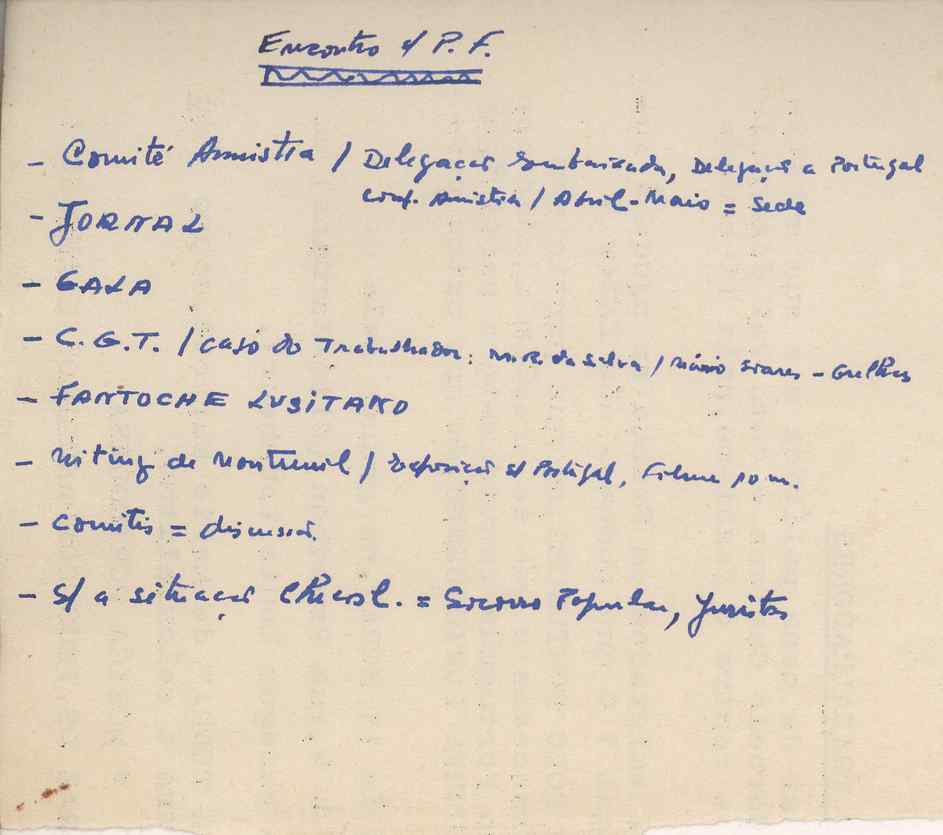 Encontro c/ P. F.
- Comité Amnistia / Delegação Embaixada, Delegação a Portugal
conf. Amnistia / Abril-Maio = Sede
- JORNAL
- GALA
- C.G.T. / caso do Trabalhador: da Silva / Mário Soares -
- FANTOCHE LUSITANO
- Miting de Montreuil / Exposição s/ Portugal, Filme 10 m.
- Comités = discussão.
- S/ a situação = Socorro Popular, Juristas